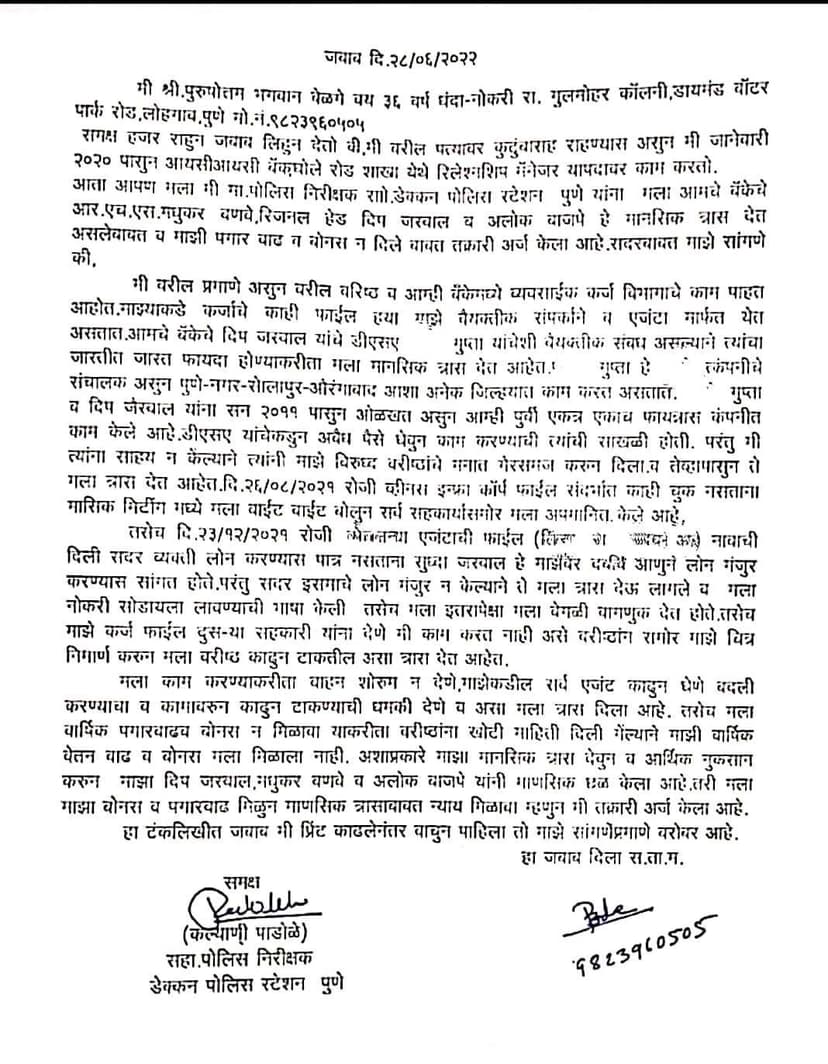 जवाब दि.२८/०६/२०२२
मी श्री.पुरुषोत्तम भगवान वेळगे वय ३६ वर्ष धंदा-नोकरी रा. गुलमोहर कॉलनी,डायमंड वॉटर
पार्क रोड,लोहगाव,पुणे मो.नं.९८२३९६०५०५
समक्ष हजर राहुन जवाब लिहुन देतो की,मी वरील पत्यावर कुटुंबासह राहण्यास असुन मी जानेवारी
२०२० पासुन आयसीआयसी बॅंक,घोले रोड शाखा येथे रिलेशनशिप मॅनेजर यापदावर काम करतो.
आता आपण मला मी मा.पोलिस निरीक्षक साो.डेक्कन पोलिस स्टेशन पुणे यांना मला आमचे बॅंकेचे
आर.एच.एस.मधुकर वणवे,रिजनल हेड दिप जरवाल व अलोक वाजपे हे मानसिक त्रास देत
असलेबाबत व माझी पगार वाढ व बोनस न दिले बाबत तक्रारी अर्ज केला आहे.सदरबाबत माझे सांगणे
की,
मी वरील प्रमाणे असुन वरील वरिष्ठ व आम्ही बॅंकेमध्ये व्यवसाईक कर्ज विभागाचे काम पाहत
आहोत.माझ्याकडे कर्जाचे काही फाईल ह्या माझे वैयक्तीक संपर्काने व एजंटा मार्फत येत
असतात.आमचे बॅंकेचे दिप जरवाल यांचे डीएसए गुप्ता यांचेशी वैयक्तीक संबध असल्याने त्यांचा
जास्तीत जास्त फायदा होण्याकरीता मला मानसिक त्रास देत आहेत. गुप्ता हे कंपनीचे
संचालक असुन पुणे-नगर-सोलापुर-औरंगाबाद आशा अनेक जिल्हयात काम करत असतात. गुप्ता
व दिप जैरवाल यांना सन २०११ पासुन ओळखत असुन आम्ही पुर्वी एकत्र एकाच फायनास कंपनीत
काम केले आहे.डीएसए यांचेकडुन अवैध पैसे घेवुन काम करण्याची त्यांची साखळी होती. परंतु मी
त्यांना साहय न केल्याने त्यांनी माझे विरुध्द वरीष्ठांचे मनात गैरसमज करुन दिला.व तेव्हापासुन ते
मला त्रास देत आहेत.दि.२६/०८/२०२१ रोजी व्हीनस इन्फ्रा कॉर्प फाईल संदर्भात काही चुक नसताना
मासिक मिटींग मध्ये मला वाईट वाईट बोलुन सर्व सहकार्यासमोर मला अपमानित केले आहे,
तसेच दि.२३/१२/२०२१ रोजी एजंटाची फाईल नावाची
दिली सदर व्यक्ती लोन करण्यास पात्र नसताना सुध्दा जरवाल हे माझेवर दबाव आणुन लोन मंजुर
करण्यास सांगत होते.परंतु सदर इसमाचे लोन मंजुर न केल्याने ते मला त्रास देऊ लागले व मला
नोकरी सोडायला लावण्याची भाषा केली तसेच मला इतरापेक्षा मला वेगळी वागणुक देत होते.तसेच
माझे कर्ज फाईल दुस-या सहकारी यांना देणे मी काम करत नाही असे वरीष्टांन समोर माझे चित्र
निमार्ण करुन मला वरीष्ठ काढुन टाकतील असा त्रास देत आहेत.
मला काम करण्याकरीता वाहन शोरुम न देणे,माझेकडील सर्व एजंट काढुन घेणे बदली
करण्याचा व कामावरुन काढुन टाकण्याची धमकी देणे व असा मला त्रास दिला आहे. तसेच मला
वार्षिक पगारवाढव बोनस न मिळावा याकरीता वरीष्ठांना खोटी माहिती दिली गेल्याने माझी वार्षिक
वेतन वाढ व बोनस मला मिळाला नाही. अशाप्रकारे माझा मानसिक त्रास देवुन व आर्थिक नुकसान
करुन माझा दिप जरवाल,मधुकर वणवे व अलोक वाजपे यांनी माणसिक छळ केला आहे.तरी मला
माझा बोनस व पगारवाढ मिळुन माणसिक त्रासाबाबत न्याय मिळावा म्हणुन मी तक्रारी अर्ज केला आहे.
हा टंकलिखीत जवाब मी प्रिंट काढलेनंतर वाचुन पाहिला तो माझे सांगणेप्रमाणे बरोबर आहे.
हा जवाब दिला स.ता.म.
समक्ष
(कल्याणी पाडोळे)
सहा.पोलिस निरीक्षक
डेक्कन पोलिस स्टेशन पुणे
9823960505